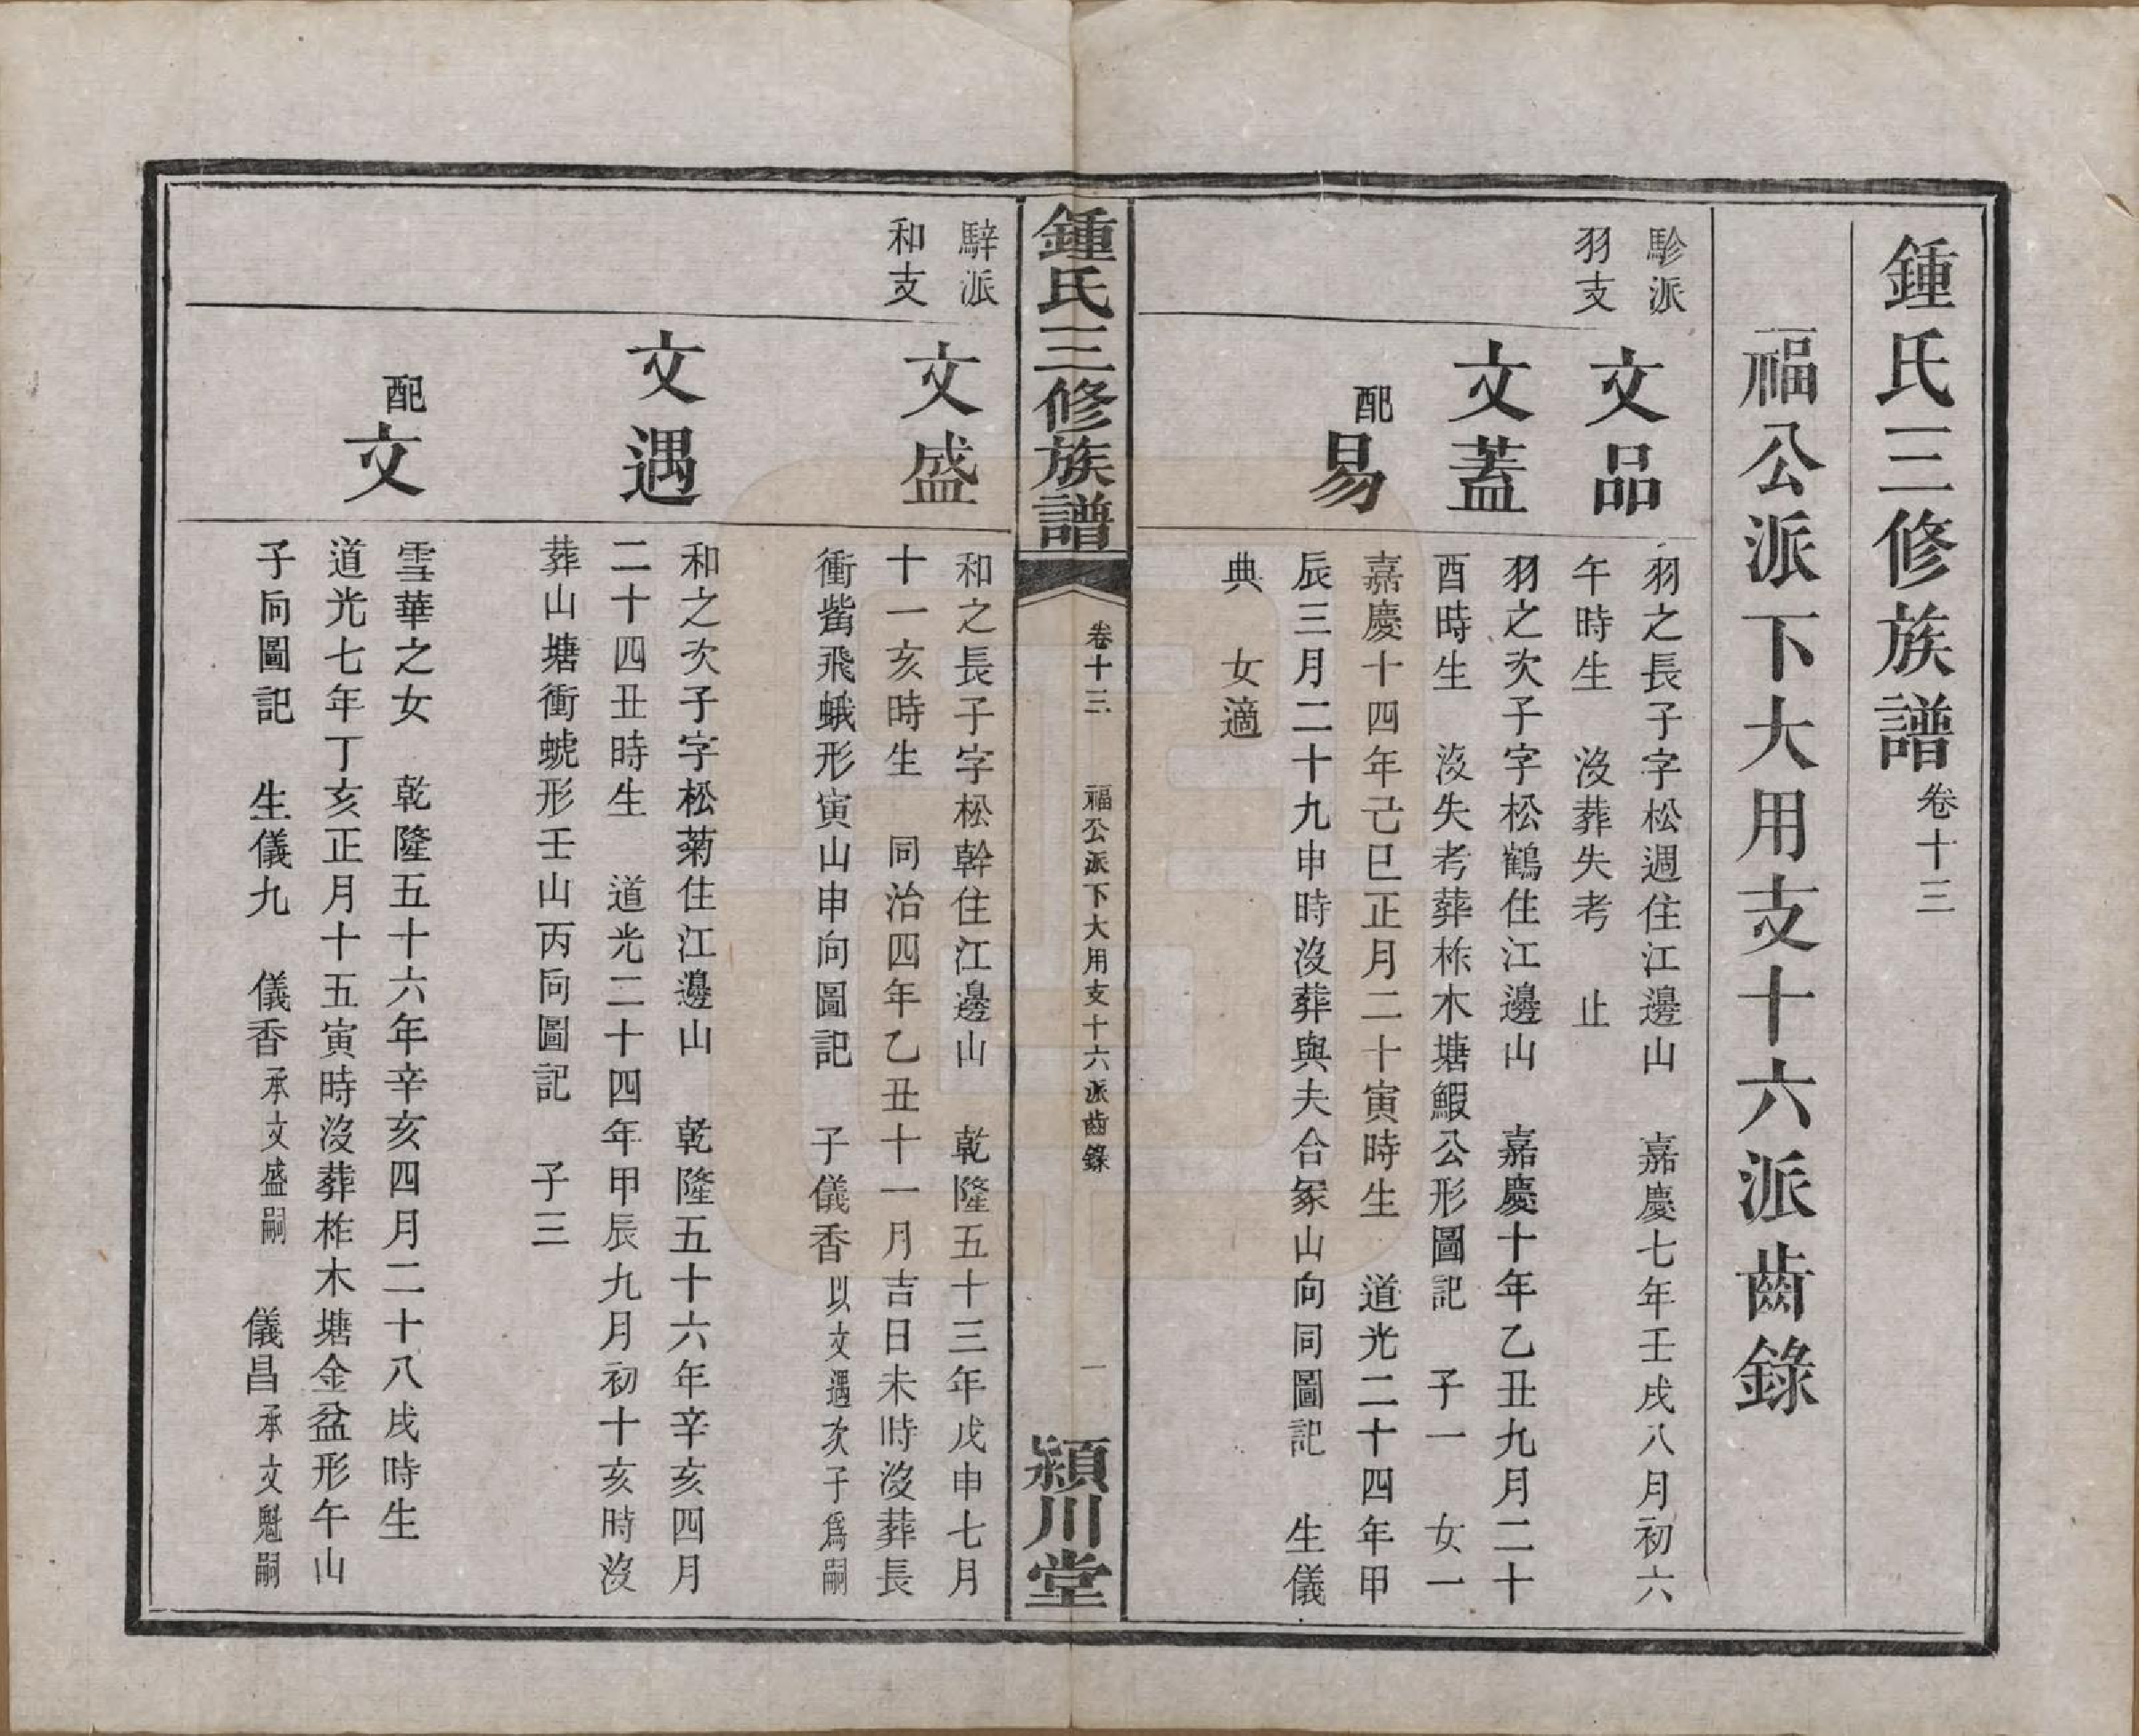 鍾氏三修族譜卷十三
福公派下大用支十六派齒錄
駗派
羽支
文品
羽之長子字松週住江邊山 嘉慶七年壬戌八月初六
午時生 沒葬失考 止
文蓋
羽之次子字松鶴住江邊山 嘉慶十年乙丑九月二十
酉時生 沒失考葬柞木塘鰕公形圖記 子一 女一
配易
嘉慶十四年己巳正月二十寅時生 道光二十四年甲
辰三月二十九申時沒葬與夫合冢山向同圖記 生儀
典 女適
鍾氏三修族譜
卷十三 福公派下大用支十六派齒錄 一
潁川堂
騂派
和支
文盛
和之長子字松幹住江邊山 乾隆五十三年戊申七月
十一亥時生 同治四年乙丑十一月吉日未時沒葬長
衝觜飛蛾形寅山申向圖記 子儀香以文遇次子爲嗣
文遇
和之次子字松菊住江邊山 乾隆五十六年辛亥四月
二十四丑時生 道光二十四年甲辰九月初十亥時沒
葬山塘衝螔形壬山丙向圖記 子三
配文
雪華之女 乾隆五十六年辛亥四月二十八戌時生
道光七年丁亥正月十五寅時沒葬柞木塘金盆形午山
子向圖記 生儀九 儀香承文盛嗣 儀昌承文魁嗣